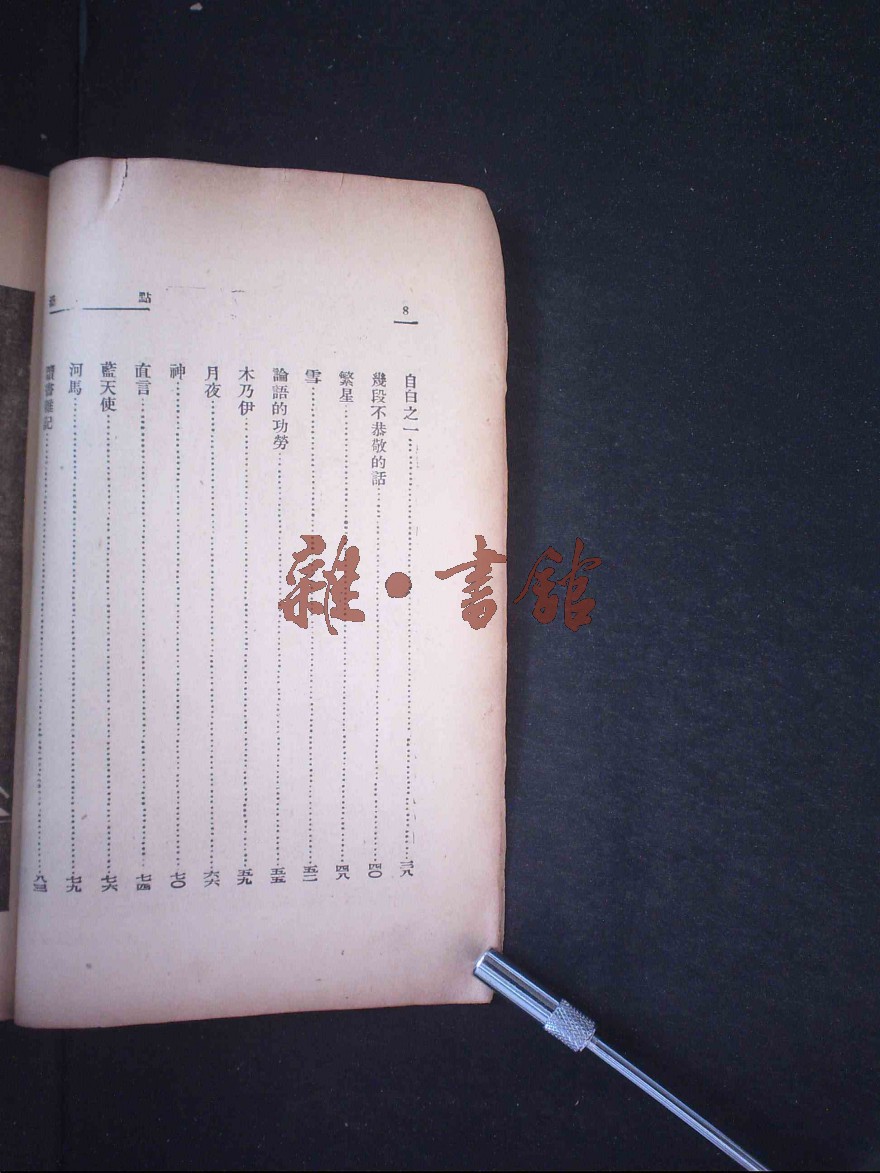 8
自白之一 三八
幾段不恭敬的話 四〇
繁星 四八
雪 五二
論語的功勞 五五
木乃伊 五九
月夜 六六
神 七〇
直言 七四
藍天使 七六
河馬 七九
讀書雜記 八三
點
雜•書館